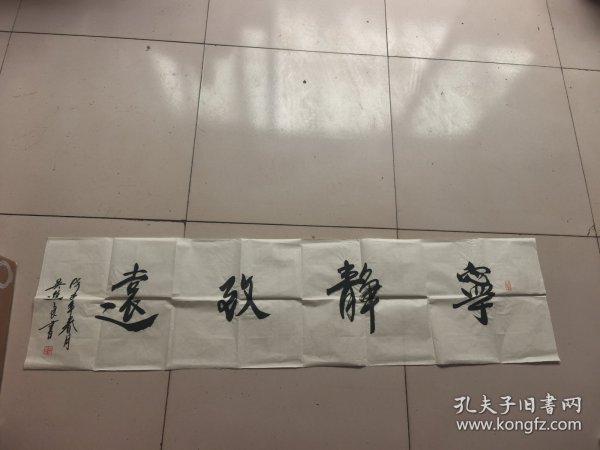 寧靜致遠
年春月
書
孔夫子旧書网
www.kongfz.com